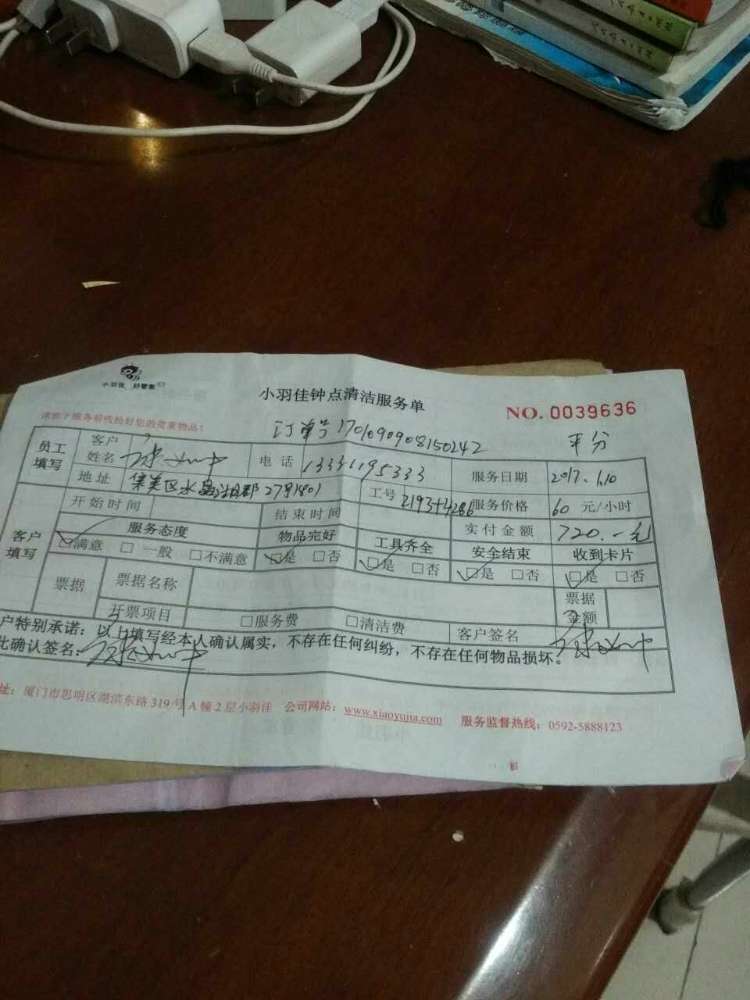 小羽佳 好管家
小羽佳钟点清洁服务单
NO. 0039636
订单号 1701090908150242 平分
员工填写 客户姓名 电话 13331195333 服务日期 2017.1.10
地址 集美区水晶湖郡 279 1801 工号 服务价格 60 元/小时
开始时间 结束时间 实付金额 720.-元
客户填写 服务态度 物品完好 工具齐全 安全结束 收到卡片
☑满意 □一般 □不满意 ☑是 □否 ☑是 □否 ☑是 □否 ☑是 □否
票据 票据名称 票据金额
开票项目 □服务费 □清洁费 客户签名
户特别承诺：以上填写经本人确认属实，不存在任何纠纷，不存在任何物品损坏。
此确认签名：
址：厦门市思明区湖滨东路 319 号 A 幢 2 层小羽佳 公司网站：www.xiaoyujia.com 服务监督热线：0592-5888123